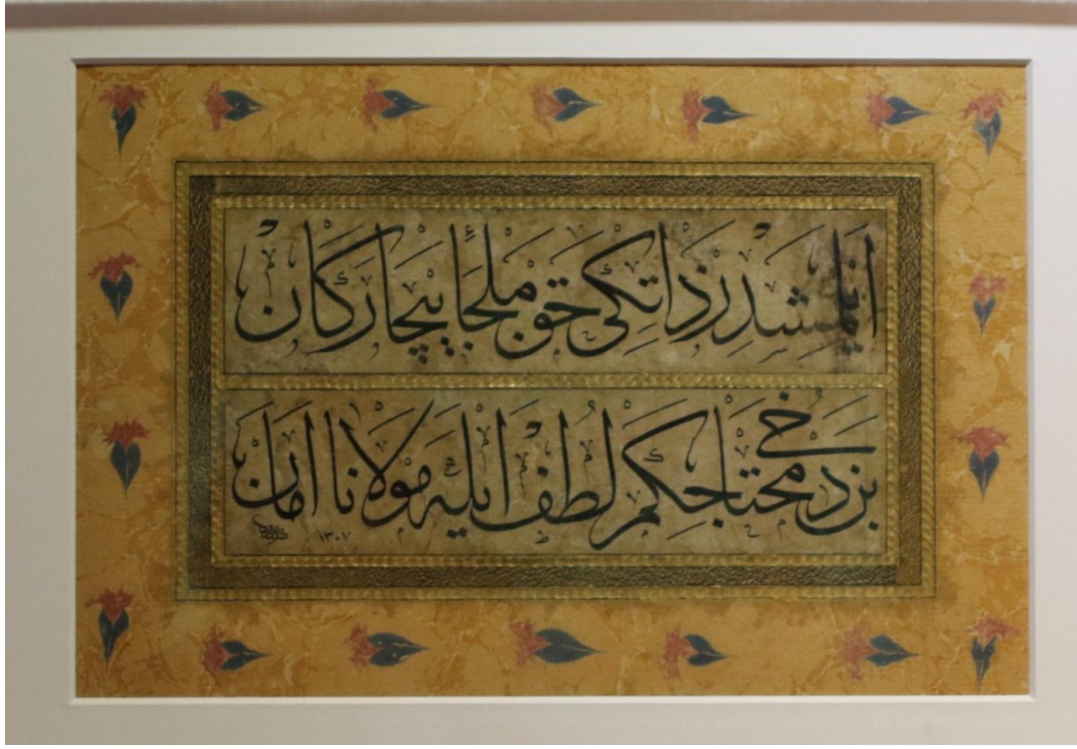 ایلمشدر ذاتكی حق ملجأ بیچارکان
بن دخی محتاجكم لطف ایله مولانا امان
١٣٠٧